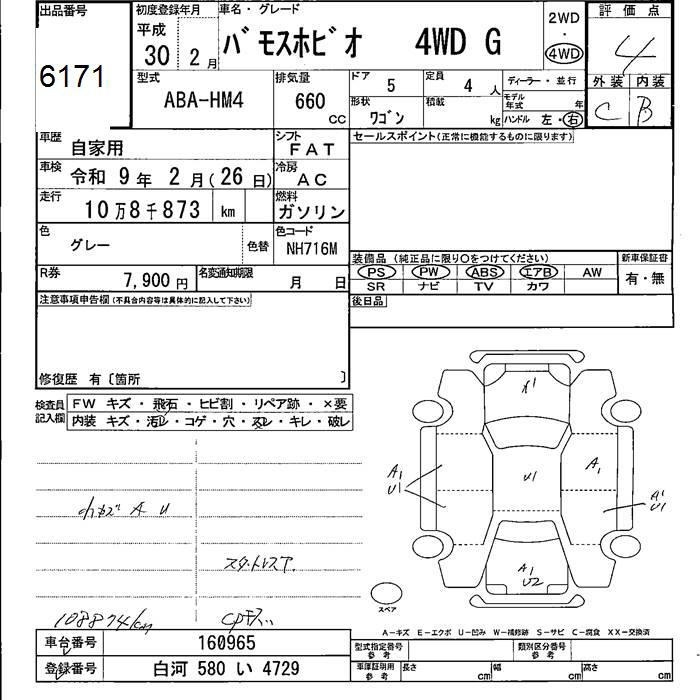 出品番号
6171
初度登録年月
平成
30 2月
車名・グレード
バモスホビオ 4WD G
2WD
・
4WD
評価点
4
外装 内装
C B
型式
ABA-HM4
排気量
660
CC
ドア 5
定員 4 人
ディーラー・並行
形状
ワゴン
積載
kg
モデル年式
年
ハンドル 左・右
車歴
自家用
シフト
FAT
車検
令和 9年 2月(26日)
冷房
AC
走行
10万8千873 km
燃料
ガソリン
色
グレー
色替
色コード
NH716M
R券
7,900円
名変通知期限
月 日
セールスポイント(正常に機能するものに限ります)
装備品 (純正品に限り○をつけてください)
PS PW ABS エアB AW
SR ナビ TV カワ
新車保証書
有・無
後日品
注意事項申告欄(不具合内容等は具体的に記入して下さい)
修復歴 有〔箇所 〕
検査員
記入欄
FW キズ・飛石・ヒビ割・リペア跡・×要
内装 キズ・汚レ・コゲ・穴・スレ・キレ・破レ
小キズ A U
スタットレスア
108874km
A1
U1
X1
U1
A1
A1
U1
A1
U2
スペア
A-キズ E-エクボ U-凹み W-補修跡 S-サビ C-腐食 XX-交換済
車台番号 160965
登録番号 白河 580 い 4729
型式指定番号
参考
類別区分番号
参考
車庫証明用
参考
長さ cm
幅 cm
高さ cm